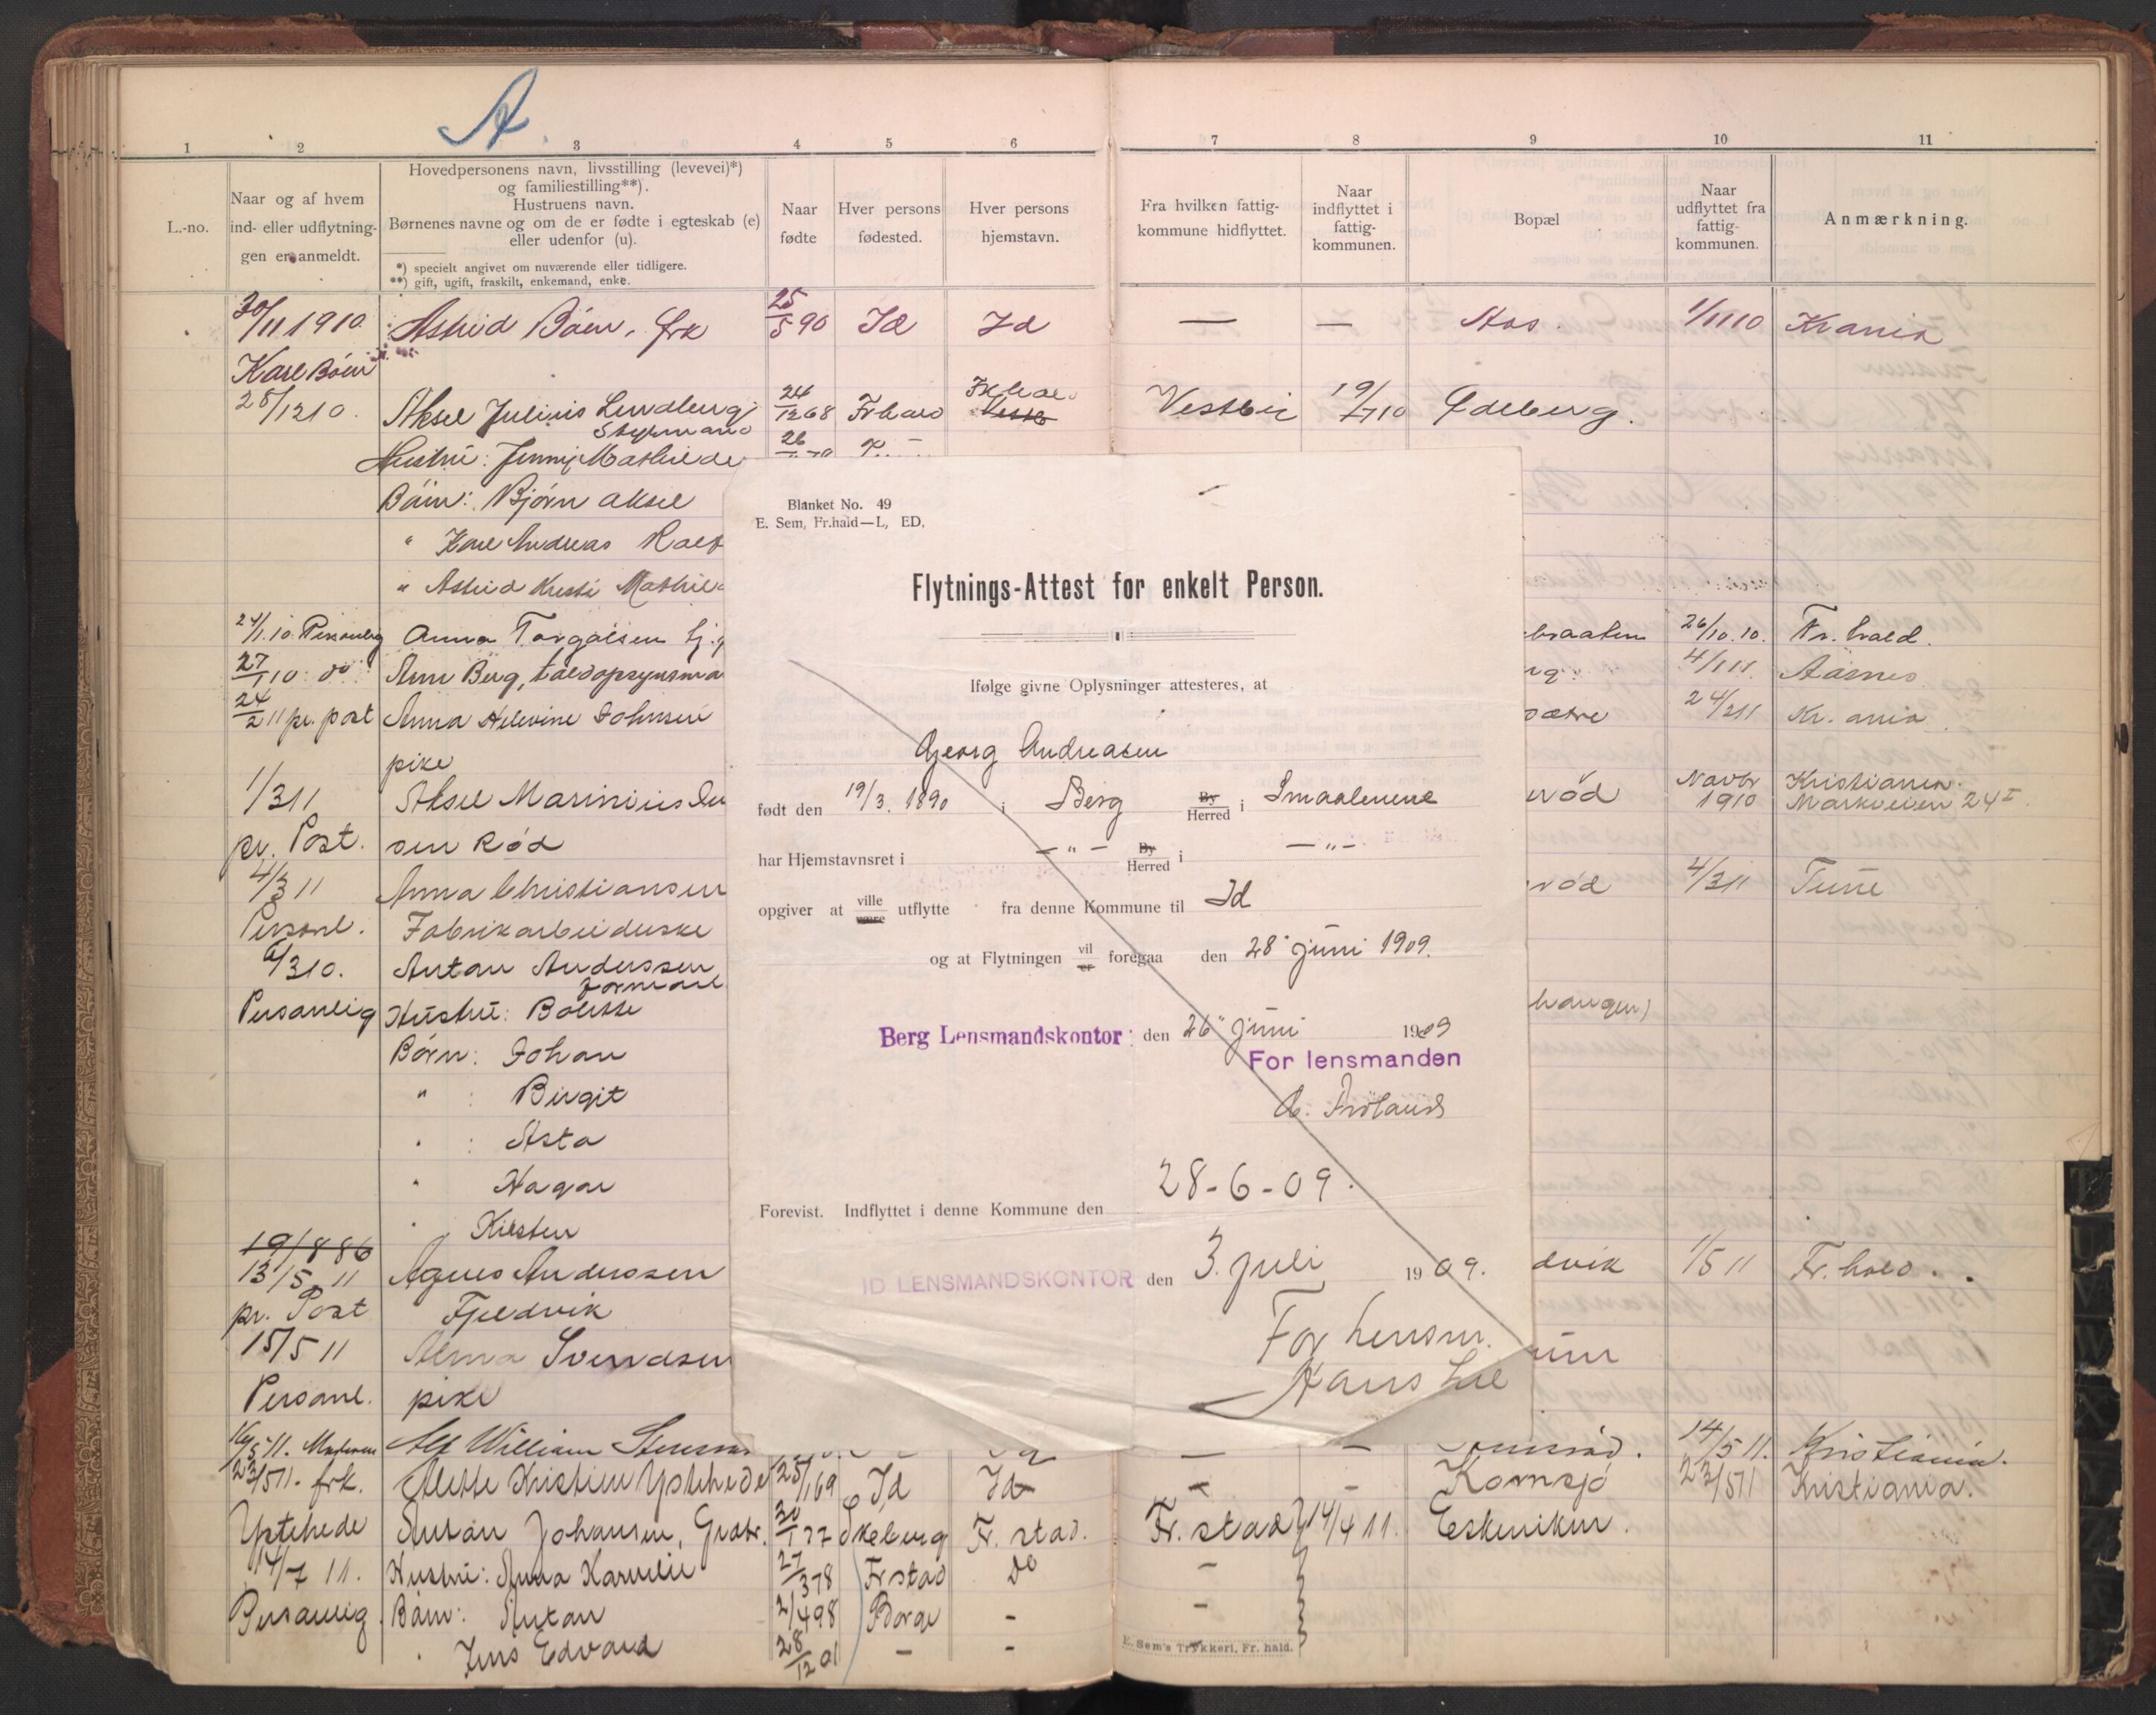 A.
1 2 3 4 5 6 7 8 9 10 11
L.-no.
Naar og af hvem
ind- eller udflytning-
gen er anmeldt.
Hovedpersonens navn, livsstilling (levevei)*)
og familiestilling**).
Hustruens navn.
Børnenes navne og om de er fødte i egteskab (e)
eller udenfor (u).
*) specielt angivet om nuværende eller tidligere.
**) gift, ugift, fraskilt, enkemand, enke.
Naar
fødte
Hver persons
fødested.
Hver persons
hjemstavn.
Fra hvilken fattig-
kommune hidflyttet.
Naar
indflyttet i
fattig-
kommunen.
Bopæl
Naar
udflyttet fra
fattig-
kommunen.
Anmærkning.
30/11 1910. Astrid Böen, frk 25/5 90 Id Id — — Aas. 1/11 10 Krania
Karl Böen
28/12 10. Aksel Julius Lundberg 24/12 68 Frhald Frhald Vestbi 19/7 10 Edeberg.
Styrmand
Hustru: Jenny Mathilde 26
Börn: Bjórn Aksel
" Karl Andreas
" Astrid Kristi
24/1.10 Personlig Anna Torgalsen 26/10.10. Fr. hald.
27/1 10 do Arne Berg, 4/1 11. Aarnes
24/2 11 pr. post Anna Helevine Johnsen 24/2 11 Kr. ania
pike
1/3 11 Aksel Marinius Novbr 1910 Kristiania.
Markveien 24 I.
pr. Post. sen Rød
4/3 11 Anna Christiansen 4/3 11 Tune
Personl. Fabrikarbeiderske
6/3 10. Anton Anderssen
formand
Personlig Hustru: Bolette
Börn: Johan
" : Birgit
" : Asta
" Hagar
" Kirsten
19/8 86
13/5 11 Agnes Anderssen 1/5 11 Fr. hald.
pr. Post Fjeldvik
15/5 11 Alma Svendsen
Personl. pike
16/5 11. Alf William — — 14/5 11. Kristiania.
23/5 11. frk. Alette Kristine Ystehede 25/1 69 Id Id - - Kornsjø 23/5 11 Kristiania.
Ystehede Anton Johansen, 30/1 77 Skeberg Fr. stad. Fr. stad 14/4 11. Eskeviken.
14/7 11. Hustru: Anna Karoline 27/3 78 Frstad do -
Personlig. Börn: Anton 2/4 98 Borge - -
" Jens Edvard 28/12 01 - -
E. Sem's Trykkeri, Fr. hald.
Blanket No. 49
E. Sem, Fr.hald—L, ED,
Flytnings-Attest for enkelt Person.
Ifølge givne Oplysninger attesteres, at
Georg Andreasen
født den 19/3. 1890 i Berg By Herred i Smaalenene
har Hjemstavnsret i — " — By Herred i — " —
opgiver at ville være utflytte fra denne Kommune til Id
og at Flytningen vil er foregaa den 28' juni 1909.
Berg Lensmandskontor den 26" juni 1909
For lensmanden
28-6-09.
Forevist. Indflyttet i denne Kommune den
ID LENSMANDSKONTOR den 3. juli 1909.
For lensm.
Hans Lie